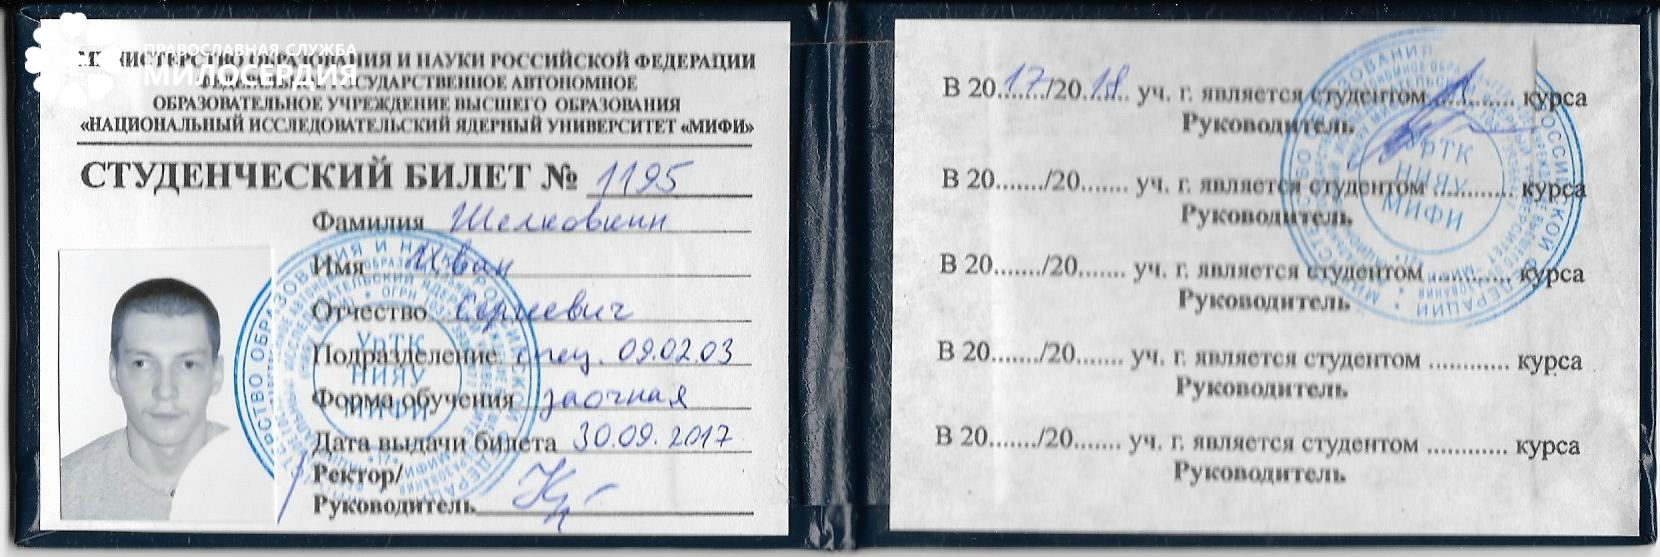 ПРАВОСЛАВНАЯ СЛУЖБА
МИЛОСЕРДИЯ
МИНИСТЕРСТВО ОБРАЗОВАНИЯ И НАУКИ РОССИЙСКОЙ ФЕДЕРАЦИИ
ФЕДЕРАЛЬНОЕ ГОСУДАРСТВЕННОЕ АВТОНОМНОЕ
ОБРАЗОВАТЕЛЬНОЕ УЧРЕЖДЕНИЕ ВЫСШЕГО ОБРАЗОВАНИЯ
«НАЦИОНАЛЬНЫЙ ИССЛЕДОВАТЕЛЬСКИЙ ЯДЕРНЫЙ УНИВЕРСИТЕТ «МИФИ»
СТУДЕНЧЕСКИЙ БИЛЕТ № 1195
Фамилия Шелковкин
Имя Иван
Отчество Сергеевич
Подразделение спец. 09.02.03
Форма обучения заочная
Дата выдачи билета 30.09.2017
Ректор/
Руководитель
УрТК
НИЯУ
МИФИ
В 2017/2018 уч. г. является студентом ............ курса
Руководитель
В 20......./20....... уч. г. является студентом ............ курса
Руководитель
В 20......./20....... уч. г. является студентом ............ курса
Руководитель
В 20......./20....... уч. г. является студентом ............ курса
Руководитель
В 20......./20....... уч. г. является студентом ............ курса
Руководитель
УрТК
НИЯУ
МИФИ